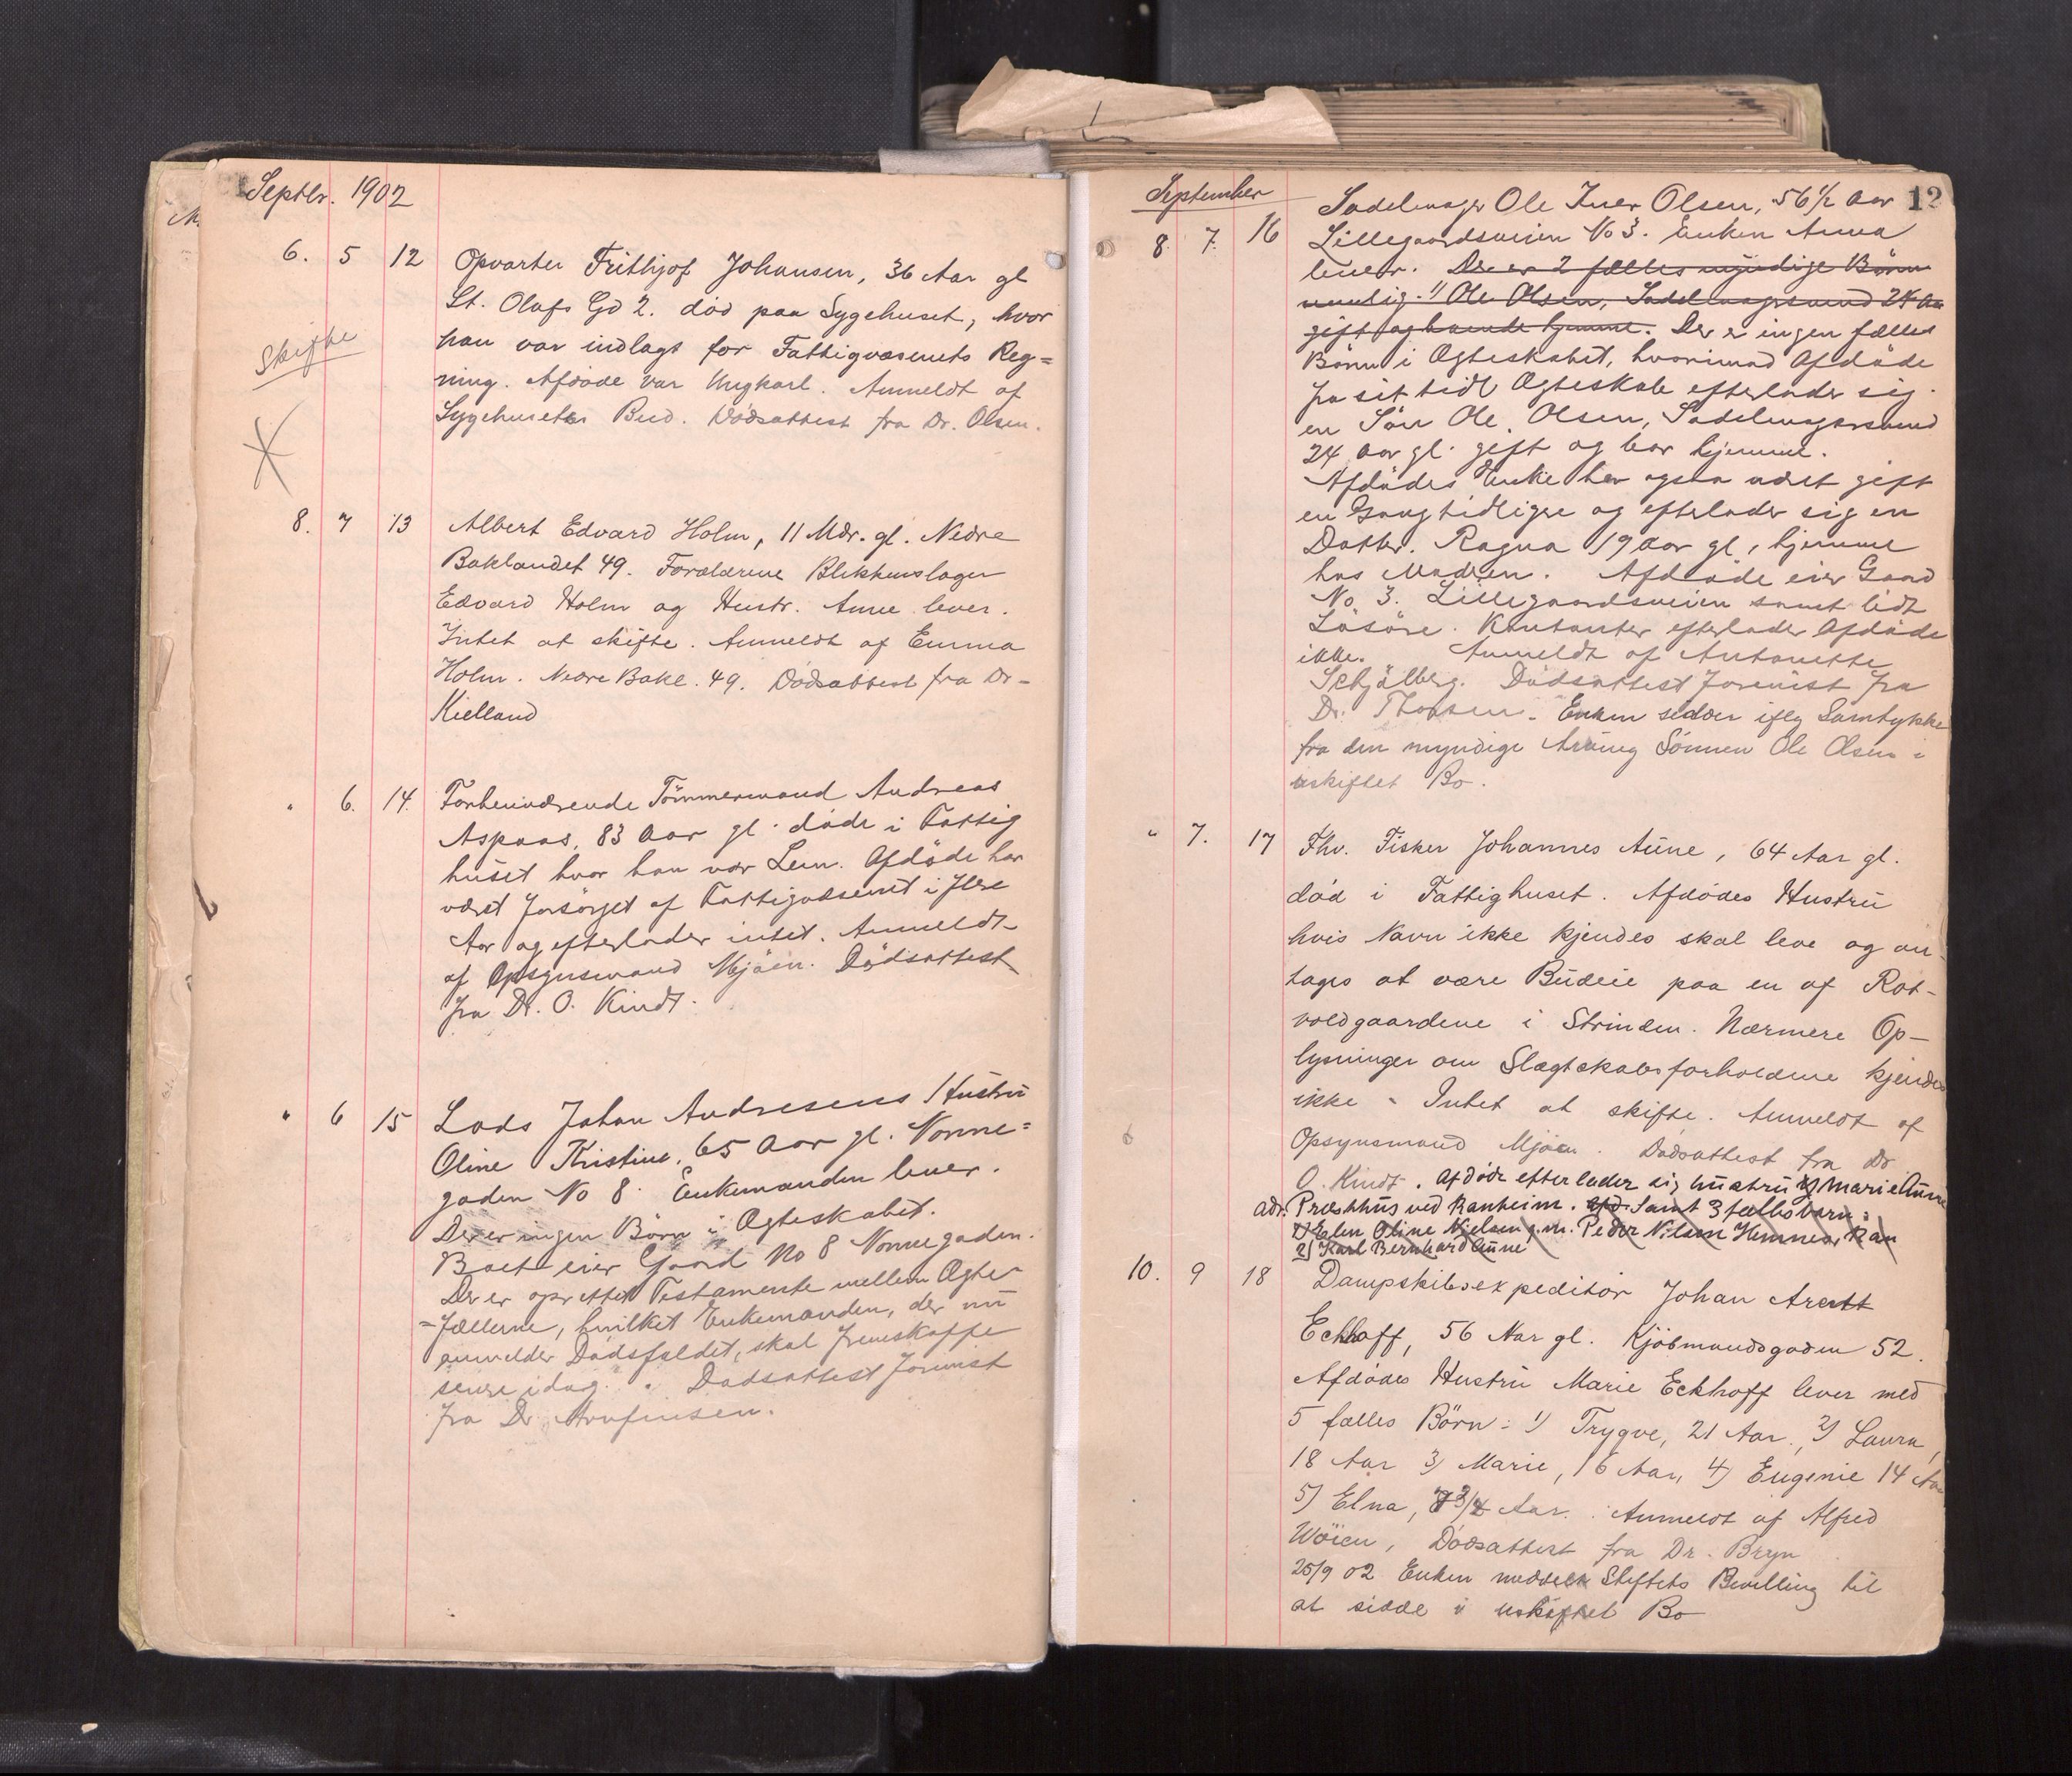 Septbr. 1902
6. 5 12 Opvarter Frithjof Johansen, 36 Aar gl
St. Olafs Gd 2. död paa Sygehuset, hvor
han var indlagt for Fattigvæsenets Reg=
ning. Afdöde var Ungkarl. Anmeldt af
Sygehusets Bud. Dödsattest fra Dr. Olsen.
Skifte
8. 7 13 Albert Edvard Holm, 11 Mdr. gl. Nedre
Baklandet 49. Forældrene Blikkenslager
Edvard Holm og Hustr. Anne lever.
Intet at skifte. Anmeldt af Emma
Holm. Nedre Bakl. 49. Dödsattest fra Dr-
Kielland
" 6. 14. Forhenværende Tömmermand Andreas
Aspaas, 83 Aar gl. döde i Fattig
huset hvor han var Lem. Afdöde har
været forsörget af Fattigvæsenet i flere
Aar og efterlader intet. Anmeldt
af Opsynsmand Mjöen. Dödsattest
fra Dr. O. Kindt.
" 6 15 Lods Johan Andresens Hustru
Oline Kristine, 65 Aar gl. Nonne=
gaden No 8. Enkemanden lever.
Der er ingen Börn i Ægteskabet.
Boet eier Gaard No 8 Nonnegaden.
Der er oprettet Testamente mellem Ægte-
=fællerne, hvilket Enkemanden, der nu
anmelder Dödsfaldet, skal fremskaffe
senere idag. Dödsattest forevist
fra Dr. Arnfinsen.
September 12
8. 7. 16 Sadelmager Ole Iver Olsen, 56 1/2 Aar
Lillegaardsveien No 3. Enken Anna
lever. Der er 2 fælles myndige Börn
nemlig 1) Ole Olsen, Sadelmagersvend 24 Aar
gift og boende hjemme. Der er ingen fælles
Börn i Ægteskabet, hvorimod Afdöde
fra sit tidl Ægteskab efterlader sig
en Sön Ole Olsen, Sadelmagersvend
24 Aar gl. gift og bor hjemme.
Afdödes Enke har ogsaa været gift
en Gang tidligere og efterlader sig en
Datter. Ragna 19 Aar gl, hjemme
hos Moderen. Afdöde eier Gaard
No 3. Lillegaardsveien samt lidt
Lösöre. Kontanter efterlader Afdöde
ikke. Anmeldt af Antonette
Schjölberg. Dödsattest forevist fra
Dr. Thorsen. Enken sidder iflg Samtykke
fra den myndige Arving Sönnen Ole Olsen i
uskiftet Bo.
" 7. 17 Fhv. Fisker Johannes Aune, 64 Aar gl.
död i Fattighuset. Afdödes Hustru
hvis Navn ikke kjendes skal leve og an-
tages at være Budeie paa en af Rot-
voldgaardene i Strinden. Nærmere Op-
lysninger om Slægtskabsforholdene kjendes
ikke - Intet at skifte. Anmeldt af
Opsynsmand Mjöen. Dödsattest fra Dr
O. Kindt. Afdöde efterlader sig hustru Marie Aune
adr. Præsthus ved Ranheim. Samt 3 fælles börn:
1) Elen Oline Nielsen g.m. Peder Nilsen Hemnes Ran
2) Karl Bernhard Aune
10. 9 18 Dampskibsexpeditör Johan Arentt
Eckhoff, 56 Aar gl. Kjöbmandsgaden 52.
Afdödes Hustru Marie Eckhoff lever med
5 fælles Börn: 1) Trygve, 21 Aar., 2) Laura,
18 Aar 3) Marie, 16 Aar, 4) Eugenie 14 Aar
5) Elna, 7 3/4 Aar. Anmeldt af Alfred
Wöien, Dödsattest fra Dr. Bryn
25/9 02 Enken meddelt Skiftets Bevilling til
at sidde i uskiftet Bo